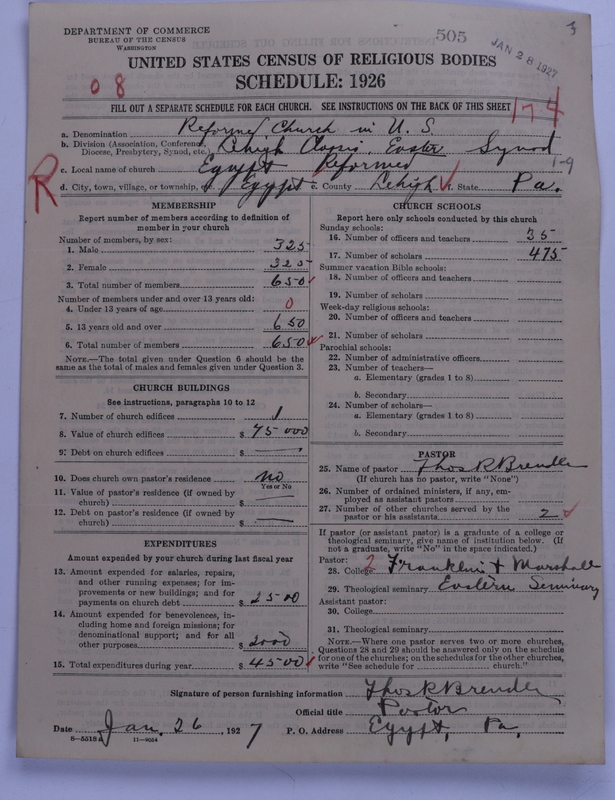 DEPARTMENT OF COMMERCE
BUREAU OF THE CENSUS
WASHINGTON
505
3
JAN 28 1927
UNITED STATES CENSUS OF RELIGIOUS BODIES
SCHEDULE: 1926
0 8
174
FILL OUT A SEPARATE SCHEDULE FOR EACH CHURCH. SEE INSTRUCTIONS ON THE BACK OF THIS SHEET
a. Denomination Reformed Church in U. S.
b. Division (Association, Conference, Diocese, Presbytery, Synod, etc.) Lehigh Classis, Eastern Synod
1-9
c. Local name of church Egypt Reformed
R
d. City, town, village, or township, Egypt e. County Lehigh f. State Pa.
MEMBERSHIP
Report number of members according to definition of
member in your church
Number of members, by sex:
1. Male 325
2. Female 325
3. Total number of members 650
Number of members under and over 13 years old:
4. Under 13 years of age 0
5. 13 years old and over 650
6. Total number of members 650
NOTE.—The total given under Question 6 should be the
same as the total of males and females given under Question 3.
CHURCH BUILDINGS
See instructions, paragraphs 10 to 12
7. Number of church edifices 1
8. Value of church edifices $ 75000
9. Debt on church edifices $ —
10. Does church own pastor's residence? no
Yes or No
11. Value of pastor's residence (if owned by
church) $ —
12. Debt on pastor's residence (if owned by
church) $ —
EXPENDITURES
Amount expended by your church during last fiscal year
13. Amount expended for salaries, repairs,
and other running expenses; for im-
provements or new buildings; and for
payments on church debt $ 2500
14. Amount expended for benevolences, in-
cluding home and foreign missions; for
denominational support; and for all
other purposes $ 2000
15. Total expenditures during year $ 4500
CHURCH SCHOOLS
Report here only schools conducted by this church
Sunday schools:
16. Number of officers and teachers 35
17. Number of scholars 475
Summer vacation Bible schools:
18. Number of officers and teachers
19. Number of scholars
Week-day religious schools:
20. Number of officers and teachers
21. Number of scholars
Parochial schools:
22. Number of administrative officers
23. Number of teachers—
a. Elementary (grades 1 to 8)
b. Secondary
24. Number of scholars—
a. Elementary (grades 1 to 8)
b. Secondary
PASTOR
25. Name of pastor Thos R Brendle
(If church has no pastor, write "None")
26. Number of ordained ministers, if any, em-
ployed as assistant pastors
27. Number of other churches served by the
pastor or his assistants 2
If pastor (or assistant pastor) is a graduate of a college or
theological seminary, give name of institution below. (If
not a graduate, write "No" in the space indicated.)
Pastor:
28. College 2 Franklin & Marshall
29. Theological seminary Eastern Seminary
Assistant pastor:
30. College
31. Theological seminary
NOTE.—Where one pastor serves two or more churches,
Questions 28 and 29 should be answered only on the schedule
for one of the churches; on the schedules for the other churches,
write "See schedule for church."
Signature of person furnishing information Thos R Brendle
Official title Pastor
Date Jan. 26, 1927 P. O. Address Egypt, Pa.
8—5518a 11—9054